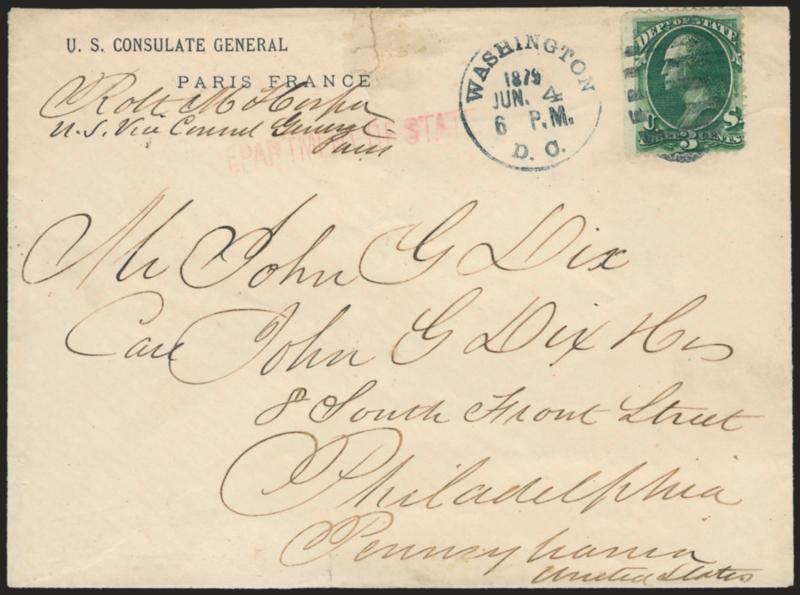 U. S. CONSULATE GENERAL
PARIS FRANCE
Robt M Hooper
U.S. Vice Consul General
Paris
DEPARTMENT OF STATE
WASHINGTON
1879
JUN. 4
6 P.M.
D. C.
DEPT. OF STATE
U. S.
3 CENTS
Mr John G Dix
Care John G Dix Hes
8 South Front Street
Philadelphia
Pennsylvania
United States